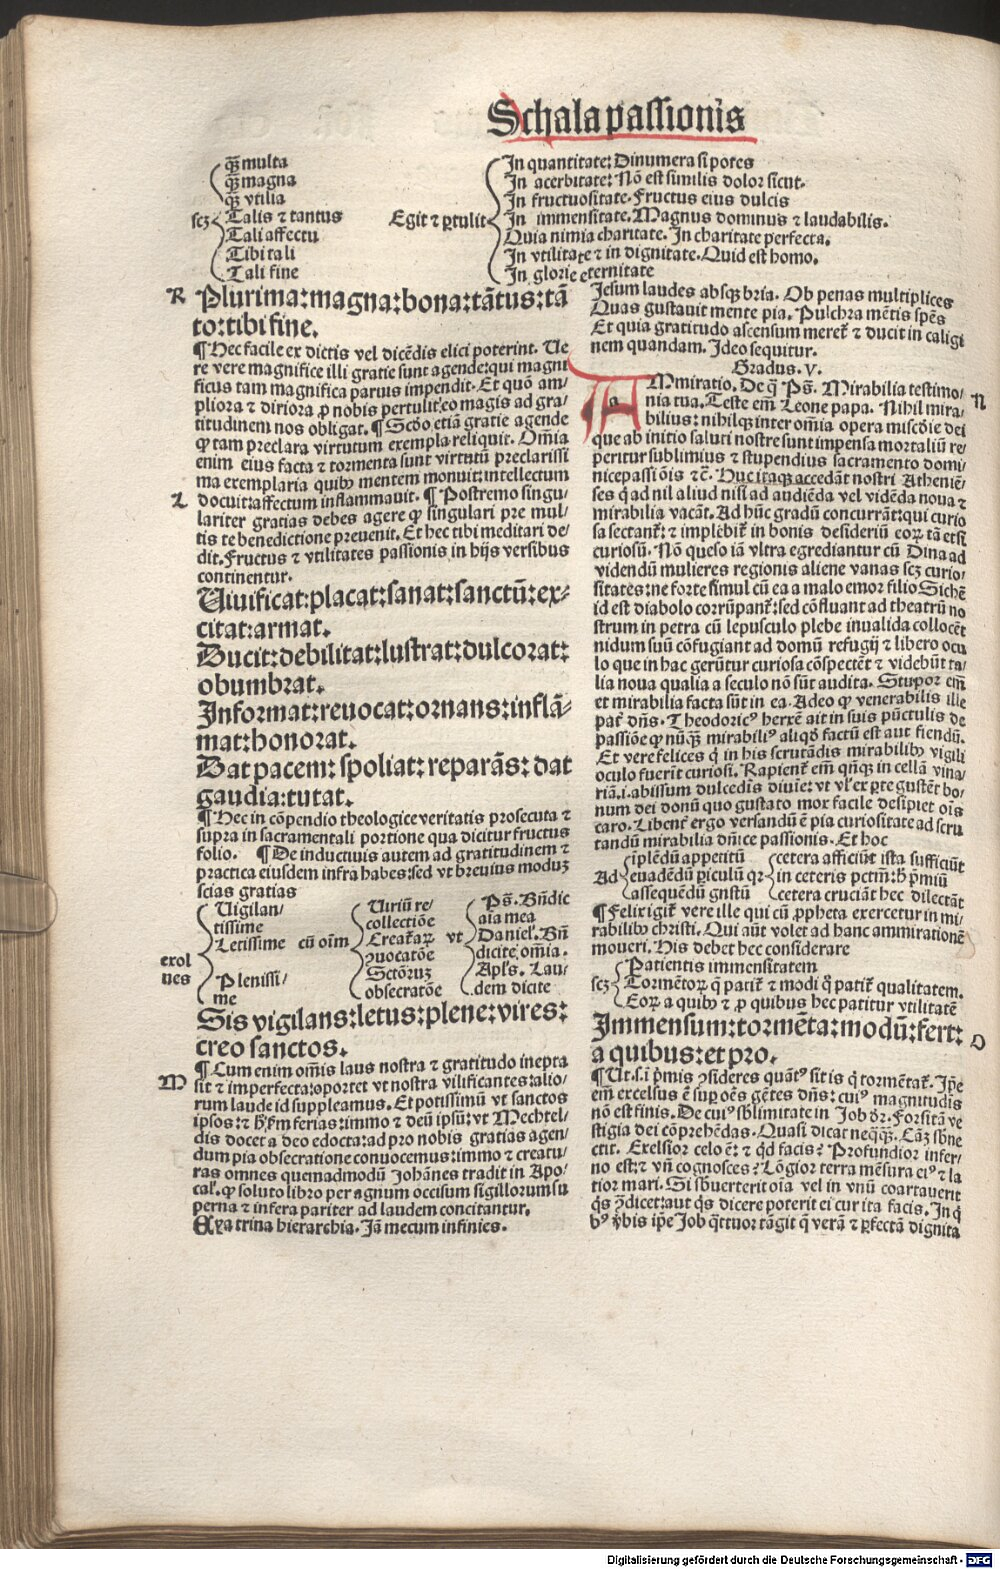 Schala passionis
qȝ multa
qȝ magna
qȝ vtilia
scȝ Talis ⁊ tantus
Tali affectu
Tibi tali
Tali fine
Egit ⁊ ꝑtulit
In quantitate: Dinumera si potes
In acerbitate: Nō est similis dolor sicut.
In fructuositate. Fructus eius dulcis
In immensitate. Magnus dominus ⁊ laudabilis.
Quia nimia charitate. In charitate perfecta.
In vtilitate ⁊ in dignitate. Quid est homo.
In glorie eternitate
K
Plurima: magna: bona: tātus: tā
to: tibi fine.
¶ Hec facile ex dictis vel dicēdis elici poterint. Ue
re vere magnifice illi gratie sunt agende: qui magni
ficus tam magnifica paruis impendit. Et quō am/
pliora ⁊ diriora ꝓ nobis pertulit: eo magis ad gra/
titudinem nos obligat. ¶ Scd̄o etiā gratie agende
ꝙ tam preclara virtutum exempla reliquit. Om̄ia
enim eius facta ⁊ tormenta sunt virtutū preclarissi
ma exemplaria quibꝰ mentem monuit: intellectum
L
docuit: affectum inflammauit. ¶ Postremo singu/
lariter gratias debes agere ꝙ singulari pre mul/
tis te benedictione preuenit. Et hec tibi meditari de/
dit. Fructus ⁊ vtilitates passionis in hijs versibus
continentur.
Uiuificat: placat: sanat: sanctū: ex/
citat: armat.
Ducit: debilitat: lustrat: dulcorat:
obumbrat.
Informat: reuocat: ornans: inflā/
mat: honorat.
Dat pacem: spoliat: reparās: dat
gaudia: tutat.
¶ Hec in cōpendio theologice veritatis prosecuta ⁊
supra in sacramentali portione qua dicitur fructus
folio. ¶ De inductiuis autem ad gratitudinem ⁊
practica eiusdem infra habes: sed vt breuius modūȝ
scias gratias
exol
ues
Uigilan/
tissime
Letissime
Plenissi/
me
cū oīm
Uiriū re/
collectiōe
Creat̄aꝝ
ꝯuocatōe
Sctōruȝ
obsecratōe
vt
Ps̄. Bn̄dic
aīa mea
Daniel. Bn̄
dicite om̄ia.
Apl's. Lau/
dem dicite
Sis vigilans: letus: plene: vires:
creo sanctos.
M
¶ Cum enim om̄is laus nostra ⁊ gratitudo inepta
sit ⁊ imperfecta: oportet vt nostra vilificantes: alio/
rum laude id suppleamus. Et potissimū vt sanctos
ipsos: ⁊ immo ⁊ deū ipsū: vt Mechtel/
dis docet a deo edocta: ad pro nobis gratias agen/
dum pia obsecratione conuocemus: immo ⁊ creatu/
ras omnes quemadmodū Johānes tradit in Apo/
cal'. ꝙ soluto libro per agnum occisum sigillorum su
perna ⁊ infera pariter ad laudem concitantur.
Eya trina hierarchia. Jā mecum infinies.
Jesum laudes absqȝ bria. Ob penas multiplices
Quas gustauit mente pia. Pulchra mētis spēs
Et quia gratitudo ascensum meret̄ ⁊ ducit in caligi
nem quandam. Ideo sequitur.
Gradus. V.
N
a
Mmiratio. De q̄ Ps̄. Mirabilia testimo/
nia tua. Teste em̄ Leone papa. Nihil mira/
bilius: nihilqȝ inter om̄ia opera miscd̄ie dei
que ab initio saluti nostre sunt impensa mortaliū re/
peritur sublimius ⁊ stupendius sacramento domi/
nice passiōis ⁊c̄. Huc itaqȝ accedāt nostri Atheniē/
ses q̄ ad nil aliud nisi ad audiēda vel vidēda noua ⁊
mirabilia vacāt. Ad hūc gradū concurrāt: qui curio
sa sectant̄: ⁊ implēbit̄ in bonis desideriū eoꝝ tā etsi
curiosū. Nō queso iā vltra egrediantur cū Dina ad
videndū mulieres regionis aliene vanas scȝ curio/
sitates: ne forte simul cū ea a malo emor filio Sichē
id est diabolo corrūpant̄: sed cōfluant ad theatrū no
strum in petra cū lepusculo plebe inualida collocēt
nidum suū cōfugiant ad domū refugij ⁊ libero ocu
lo que in hac gerūtur curiosa cōspectēt ⁊ videbūt ta/
lia noua qualia a seculo nō sūt audita. Stupor em̄
et mirabilia facta sūt in ea. Adeo ꝙ venerabilis ille
pat̄ dn̄s. Theodoricꝰ herxē ait in suis pūctulis de
passiōe ꝙ nūqȝ mirabiliꝰ aliqd̄ factū est aut fiendū.
Et vere felices q̄ in his scrutādis mirabilibꝰ vigili
oculo fuerit curiosi. Rapient̄ em̄ qn̄qȝ in cellā vina/
riā. i. abissum dulcedis diuīe: vt vl' ex ꝑte gustēt bo/
num dei donū quo gustato mox facile desipiet oīs
caro. Libent̄ ergo versandū ē pia curiositate ad scru
tandū mirabilia dn̄ice passionis. Et hoc
Ad
iplēdū appetitū
euadēdū ꝑiculū qꝛ
assequēdū gustū
cetera afficiūt ista sufficiūt
in ceteris pctm̄: ħ p̄miū
cetera cruciāt hec dilectāt
¶ Felix igit̄ vere ille qui cū ꝓpheta exercetur in mi/
rabilibꝰ christi. Qui aūt volet ad hanc ammirationē
moueri. His debet hec considerare
scȝ
Patientis immensitatem
Tormētoꝝ q̄ patit̄ ⁊ modi q̄ patit̄ qualitatem.
Eoꝝ a quibꝰ ⁊ ꝓ quibus hec patitur vtilitatē
O
Immensum: tormēta: modū: fert:
a quibus: et pro.
¶ Ut. s. i p̄mis ꝯsideres quātꝰ sit is q̄ tormētat̄. Ip̄e
em̄ excelsus ē suꝑ oēs gētes dn̄s: cuiꝰ magnitudis
nō est finis. De cuiꝰ sb̄limitate in Job dr̄. Forsitā ve
stigia dei cōprehēdas. Quasi dicat neqȝqȝ. Cāȝ sb̄ne
ctit. Exelsior celo ē: ⁊ qd̄ facis? Profundior infer/
no est: ⁊ vn̄ cognosces? Lōgior terra mēsura eiꝰ ⁊ la
tior mari. Si sb̄uerterit oīa vel in vnū coartauerit
q̄s ꝯdicet: aut q̄s dicere poterit ei cur ita facis. In q̄
bꝰ ꝟbis ip̄e Job q̄ttuor tāgit q̄ verā ⁊ ꝑfectā dignita
Digitalisierung gefördert durch die Deutsche Forschungsgemeinschaft - DFG